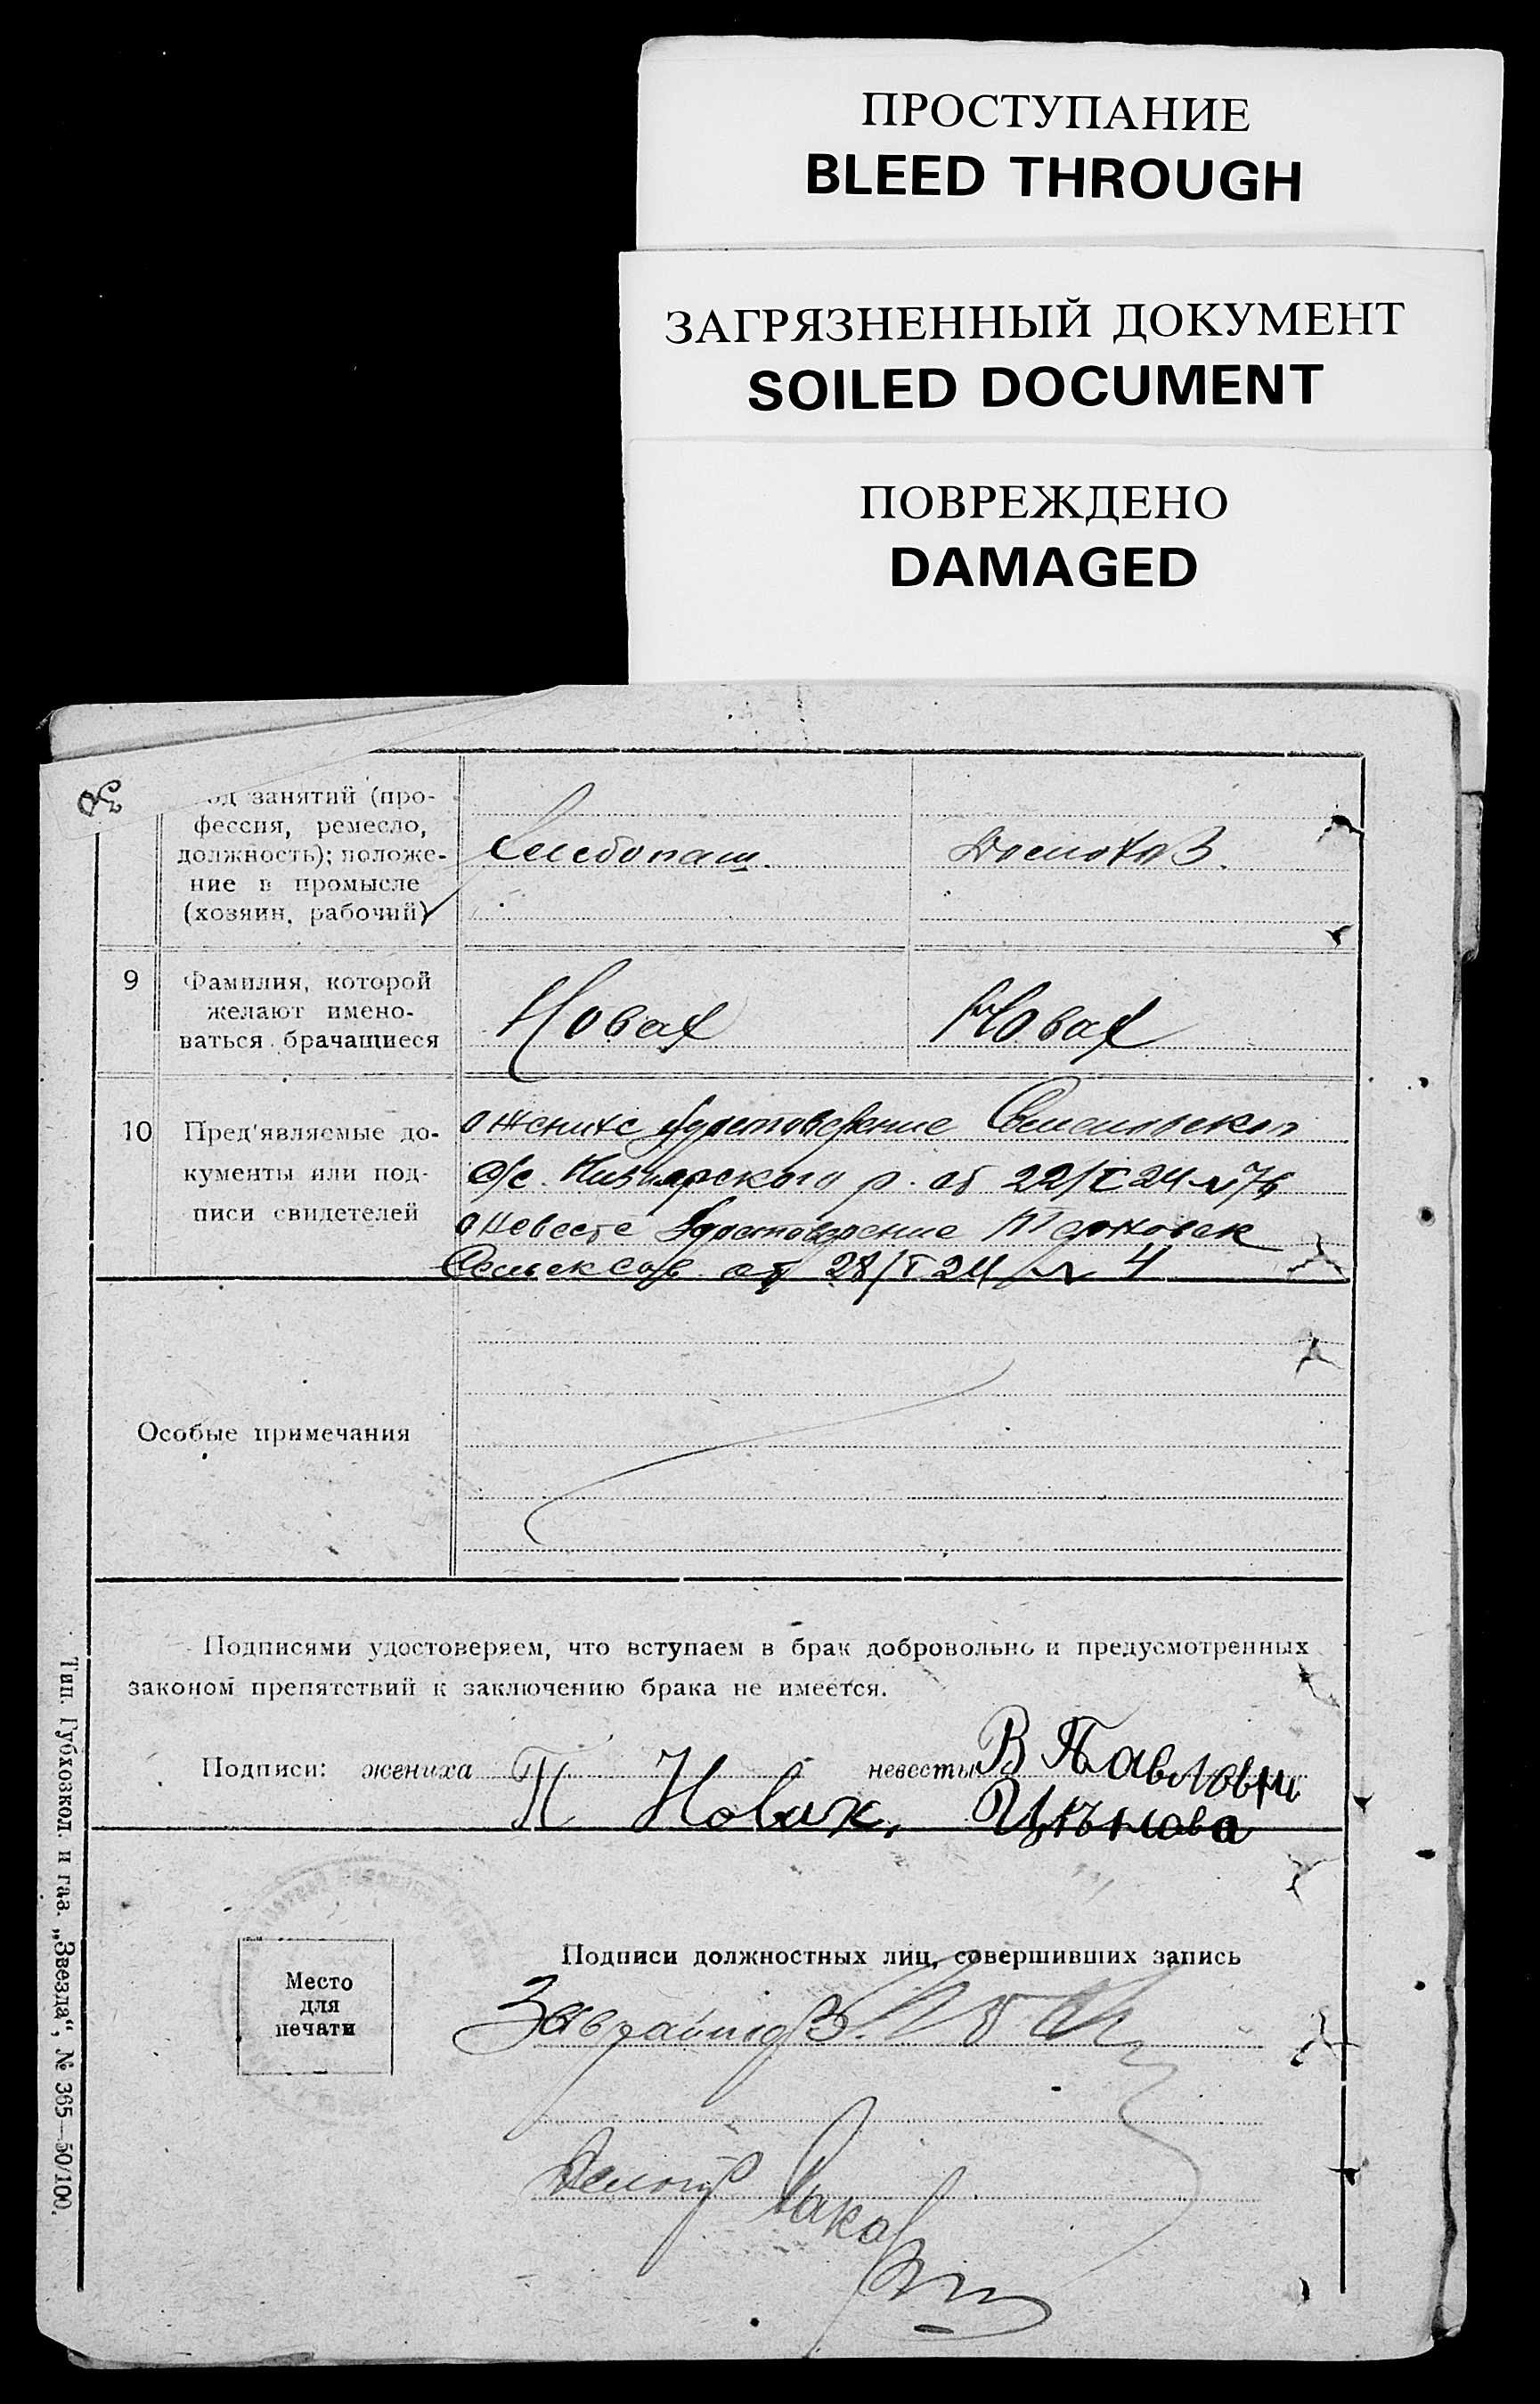 ПРОСТУПАНИЕ
BLEED THROUGH
ЗАГРЯЗНЕННЫЙ ДОКУМЕНТ
SOILED DOCUMENT
ПОВРЕЖДЕНО
DAMAGED
од занятий (про-
фессия, ремесло,
должность); положе-
ние в промысле
(хозяин, рабочий)
Хлебопаш.
Домохоз.
9
Фамилия, которой
желают имено-
ваться брачащиеся
Новах
Новах
10
Пред'являемые до-
кументы или под-
писи свидетелей
о женихе удостоверение
с/с. р. от 22/I 24 № 76
о невесте Удостоверение
от 28/I 24 № 4
Особые примечания
Подписями удостоверяем, что вступаем в брак добровольно и предусмотренных
законом препятствий к заключению брака не имеется.
Подписи: жениха П Новах, невесты В Павловн
Место
для
печати
Подписи должностных лиц, совершивших запись
Зав
Делопр
Тип. Губхозкол. и газ. „Звезда“, № 365—50/100.